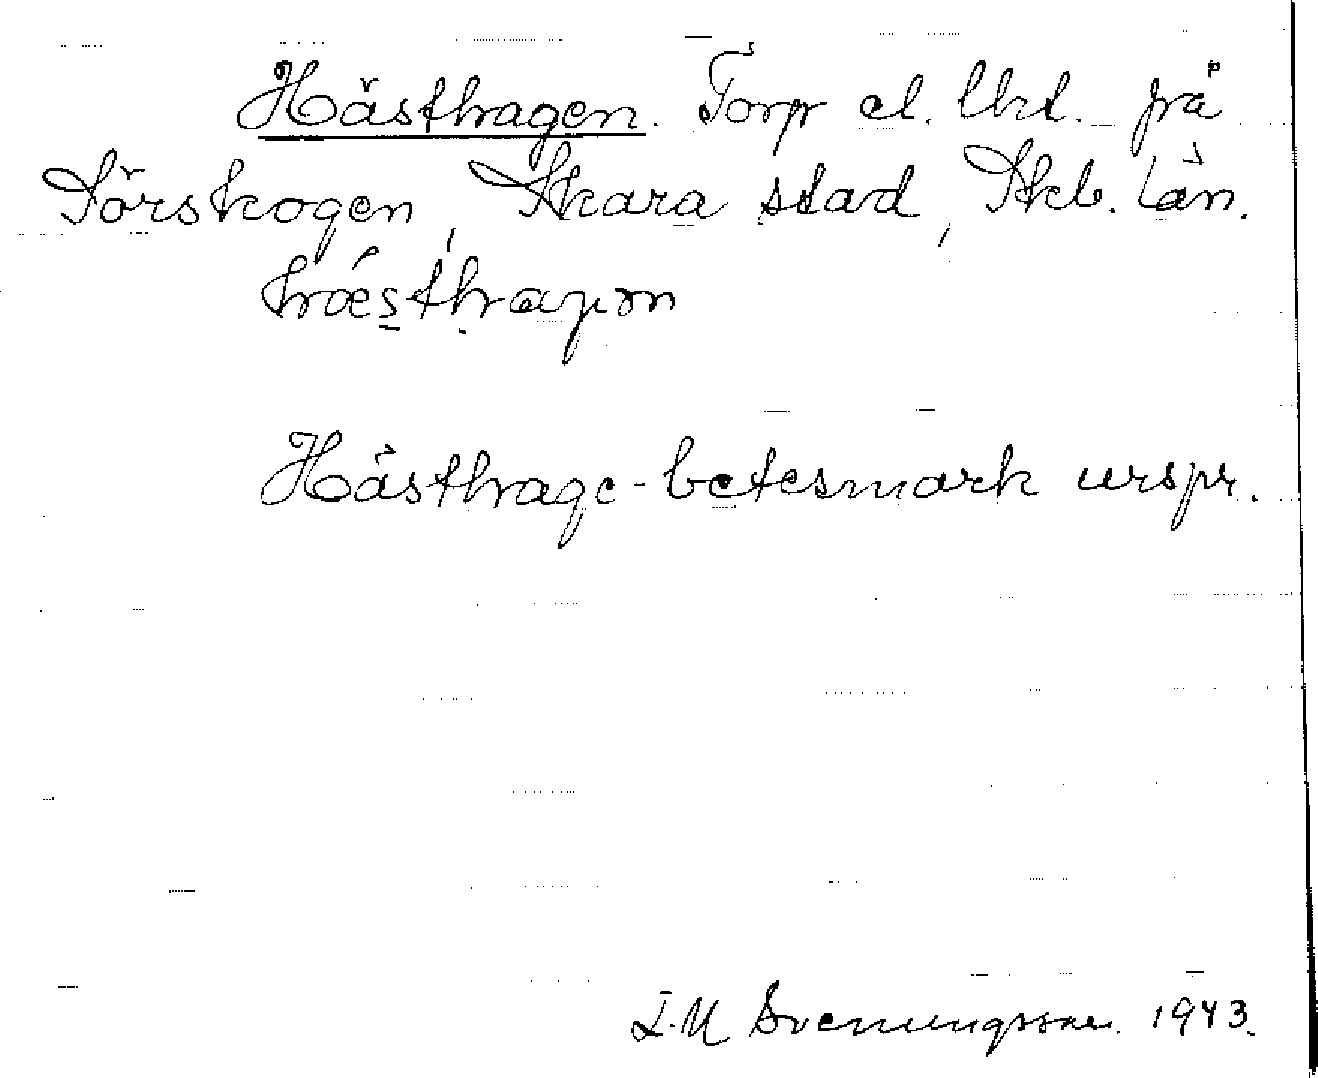 Hästhagen. Torp el. lht. på
Sörskogen, Skara stad, Skb. län.
hǽsthaɡɷn
Hästhage - betesmark urspr.
I.M Svenungsson. 1943.